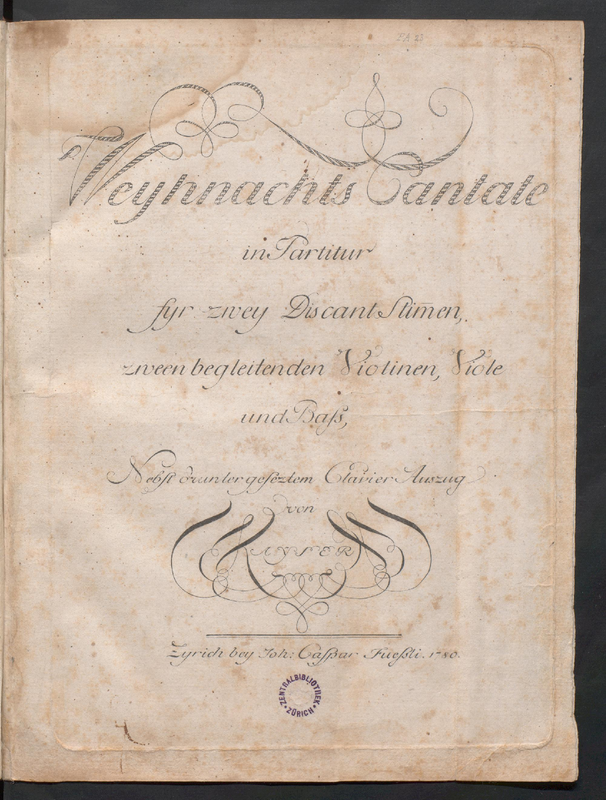 Weyhnachts Cantate
in Partitur
fyr zwey Discant Stim̅en,
zween begleitenden Violinen, Viole
und Baſs,
Nebst drunter geseztem Clavier Auszug
von
KAYSER
Zyrich bey Joh: Caſpar Fueſsli. 1780.
ZENTRALBIBLIOTHEK
ZÜRICH